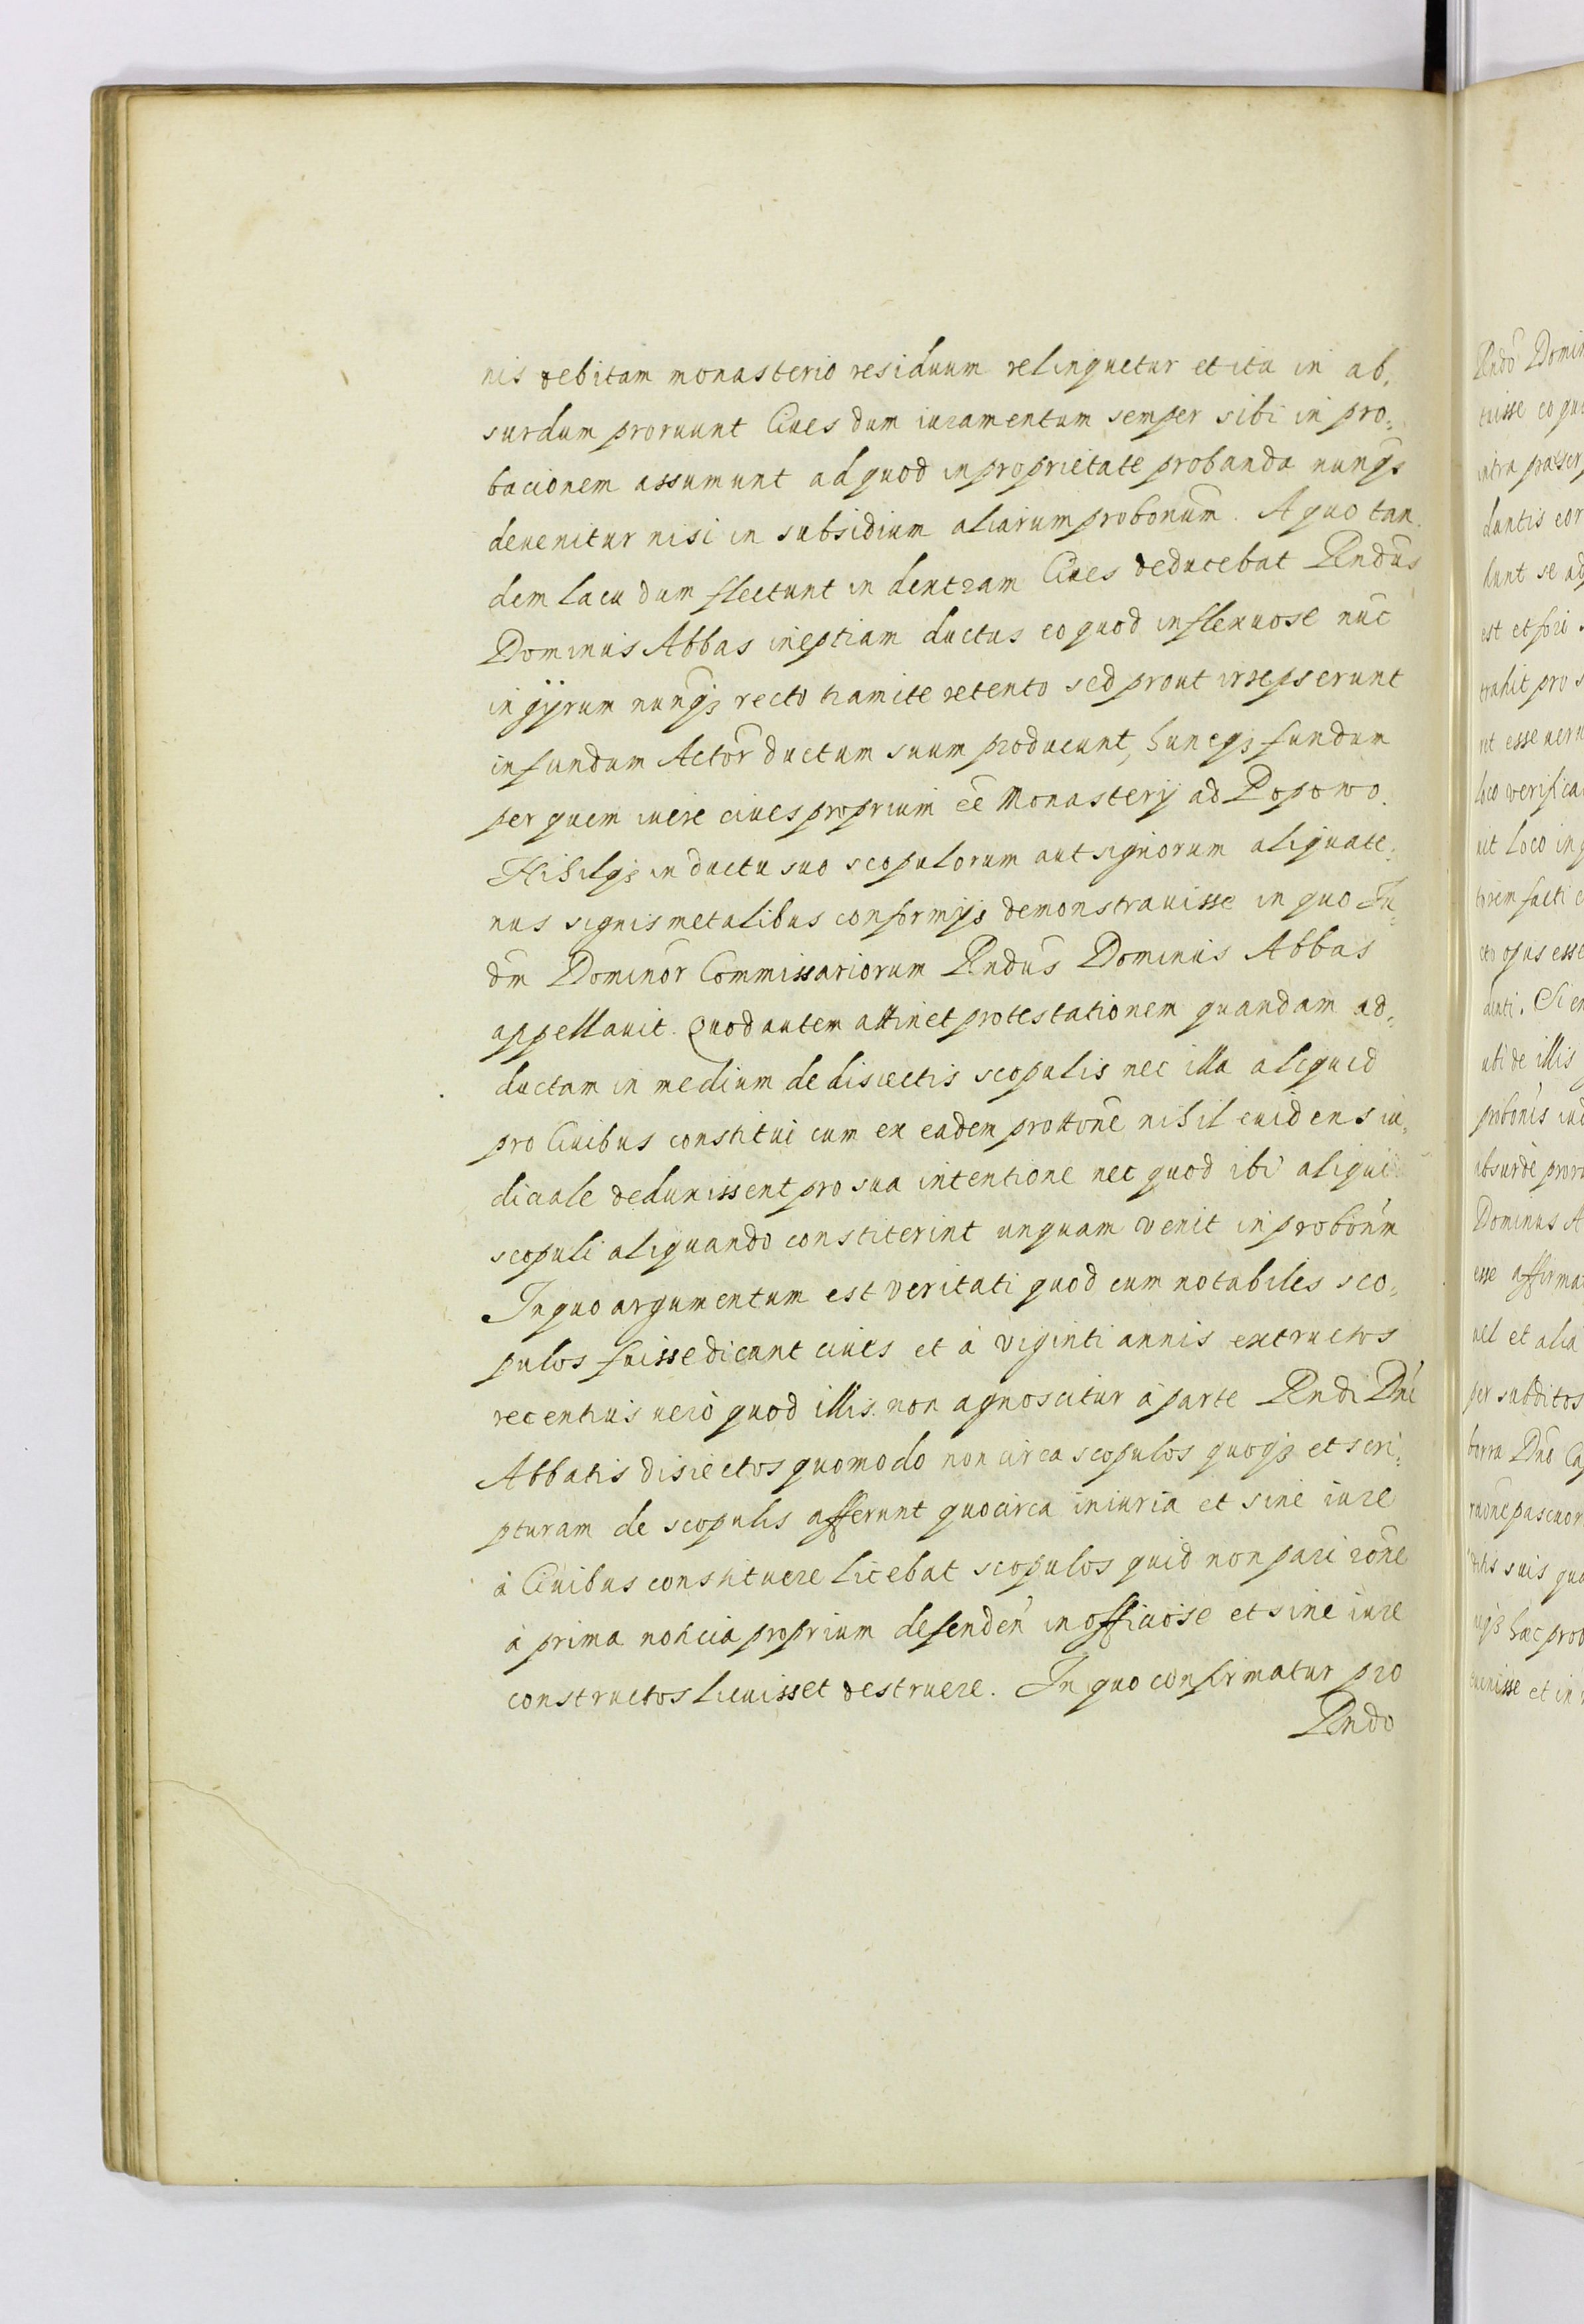 nis debitam monasterio residuum relinquetur et ita in ab,
surdum proruunt Ciues dum iuramentum semper sibi in pro,
bacionem assumunt ad quod in proprietate probanda nunqȝ
deuenitur nisi in subsidium aliarum probonum. A quo tan,
dem lacu dum flectunt in dextram Ciues deducebat Rndus
Dominus Abbas ineptiam ductus eo quod inflexuose nuc
in gÿrum nunqȝ recto tramite retento sed prout irrepserunt
in fundum Actor ductum suum producunt, huncqȝ fundum
per quem iuere ciues proprium ee Monasterÿ ad Popowo.
Nihilqȝ in ductu suo scopulorum aut signorum aliquate,
nus signis metalibus conformÿs demonstrauisse in quo Iu,
dm Dominor Commissariorum Rndus Dominus Abbas
appellauit. Quod autem attinet protestationem quandam ad,
ductam in medium de disiectis scopulis nec illa aliquid
pro Ciuibus constitui cum ex eadem prottone nihil euidens iu,
diciale deduxissent pro sua intentione nec quod ibi aliqui
scopuli aliquando constiterint unquam venit in probonm
In quo argumentum est veritati quod cum notabiles sco,
pulos fuisse dicunt ciues et à viginti annis extructos
recentius uero quod illis non agnoscitur à parte Rndi Dni
Abbatis disiectos quomodo non circa scopulos quoqȝ et scri,
pturam de scopulis afferunt quocirca iniuria et sine iure
à Ciuibus constituere licebat scopulos quid non pari rone
à prima noticia proprium defenden inofficiose et sine iure
constructos licuisset destruere. In quo confirmatur pro
Rndo
Rndo Domin
tuisse eo qu
intra
duntis
dunt se
est et
trahit pro
esse
loco verifica
uit loco in
facti
opus esse
Si
uti de illis
probonis
absurde
Dominus A
esse affirma
uel et alia
per subditos
terra Dno
pascuor
suis
hæc
et in